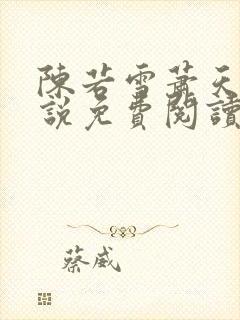 陳若雪蕭天
說免費閱讀
蔡威